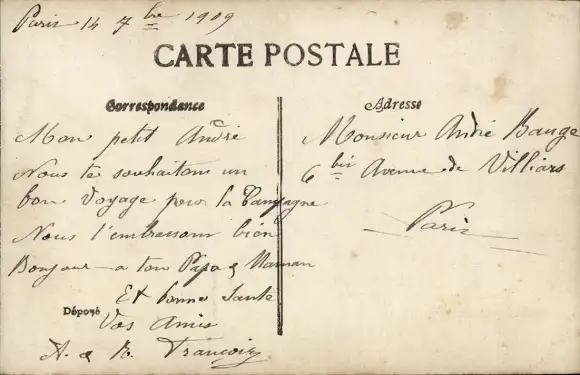 Paris 14 7bre 1909
CARTE POSTALE
Correspondance
Mon petit André
Nous te souhaitons un
bon voyage pour la Campagne
Nous t'embrassons bien
Bonjour a ton Papa & Maman
Et bonne Sante
Déposé
Vos Amis
A. & R. François
Adresse
Monsieur André Bauge
6 bis Avenue de Villiars
Paris